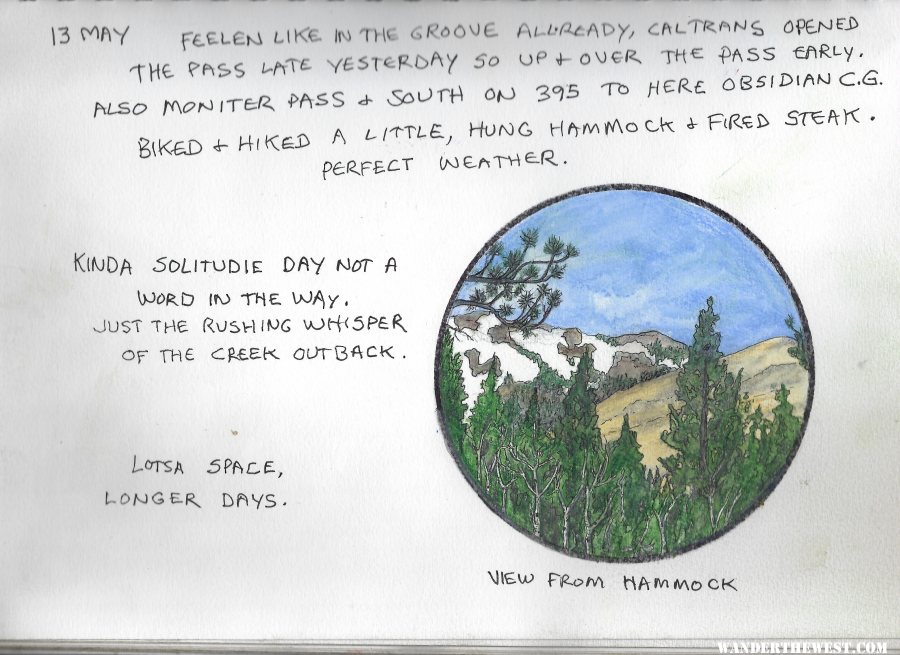 13 MAY FEELEN LIKE IN THE GROOVE ALLREADY, CALTRANS OPENED
THE PASS LATE YESTERDAY SO UP & OVER THE PASS EARLY.
ALSO MONITER PASS & SOUTH ON 395 TO HERE OBSIDIAN C.G.
BIKED & HIKED A LITTLE, HUNG HAMMOCK & FIRED STEAK.
PERFECT WEATHER.
KINDA SOLITUDIE DAY NOT A
WORD IN THE WAY.
JUST THE RUSHING WHISPER
OF THE CREEK OUTBACK.
LOTSA SPACE,
LONGER DAYS.
VIEW FROM HAMMOCK
WANDERTHEWEST.COM